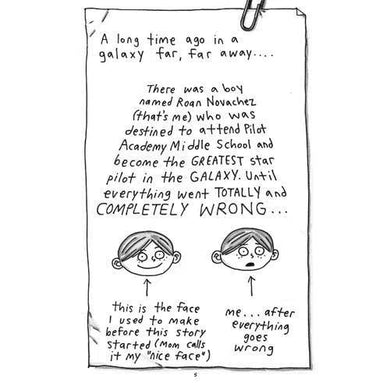 A long time ago in a
galaxy far, far away....
There was a boy
named Roan Novachez
(that's me) who was
destined to attend Pilot
Academy Middle School and
become the GREATEST star
pilot in the GALAXY. Until
everything went TOTALLY and
COMPLETELY WRONG...
this is the face
I used to make
before this story
started (Mom calls
it my "nice face")
me... after
everything
goes
wrong